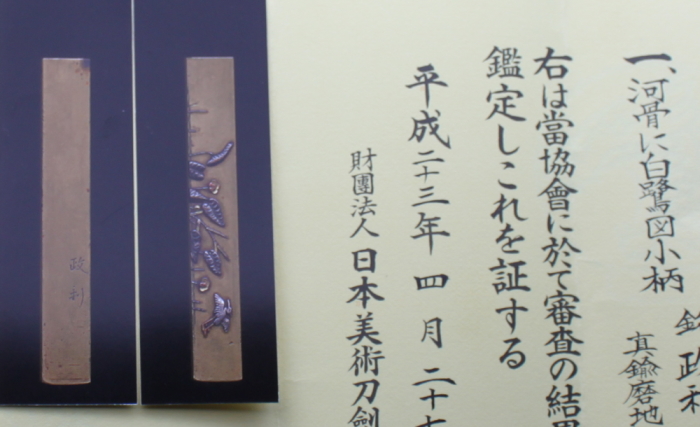 一、河骨に白鷺図小柄
銘 政利
真鍮磨地
右は當協會に於て審査の結果
鑑定しこれを証する
平成二十三年四月二十七
財團法人 日本美術刀劍
政利